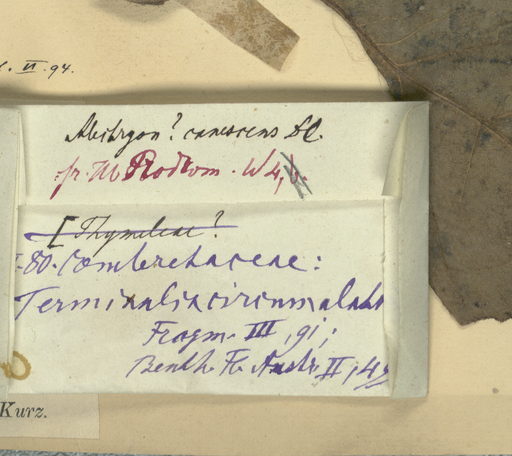 VI. 94.
canescens DC.
fr. m Rodtom. W 4,
[Thymeleae?
80. Combretaceae:
Terminalia circumalata
Fragm. III, 91;
Benth. Fl. Austr. II, 49
Kurz.